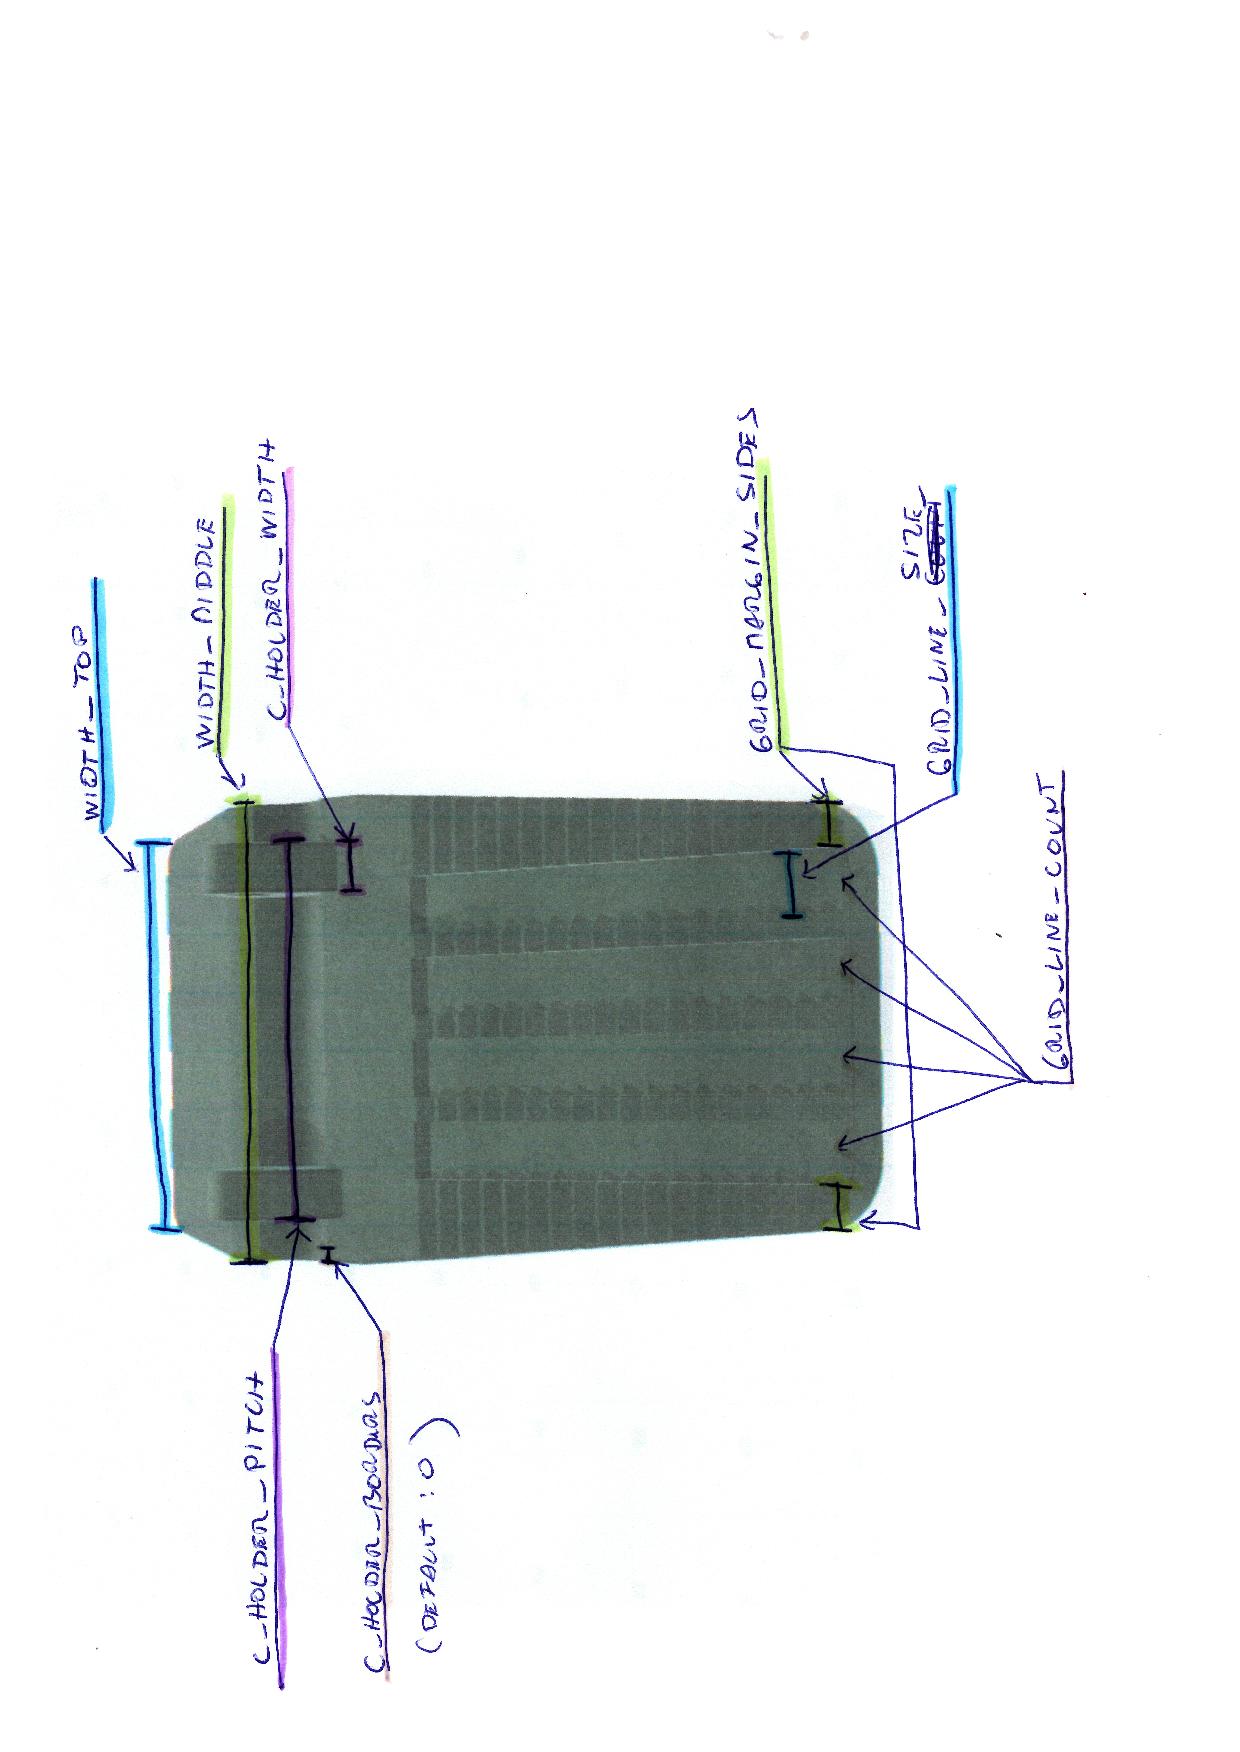 WIDTH_TOP
WIDTH_MIDDLE
C_HOLDER_PITCH
C_HOLDER_WIDTH
C_HOLDER_BORDERS
(DEFAULT : 0)
GRID_MARGIN_SIDES
SIZE_
GRID_LINE_
GRID_LINE_COUNT